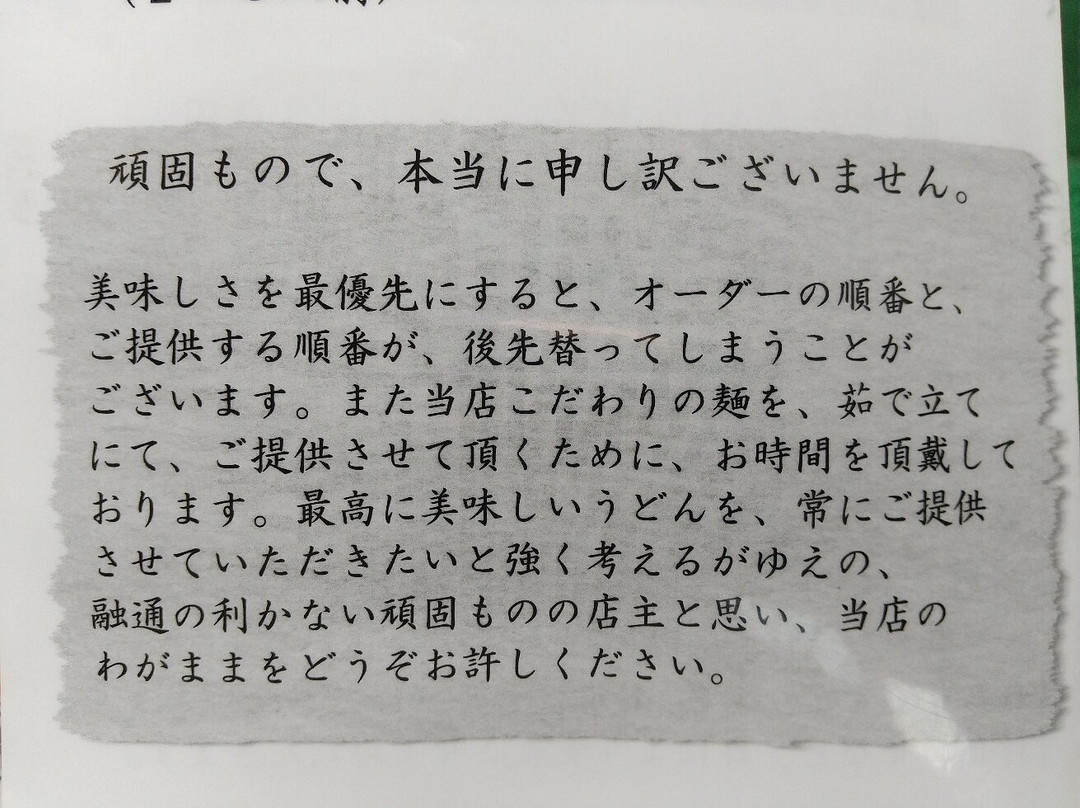 頑固もので、本当に申し訳ございません。
美味しさを最優先にすると、オーダーの順番と、
ご提供する順番が、後先替ってしまうことが
ございます。また当店こだわりの麺を、茹で立て
にて、ご提供させて頂くために、お時間を頂戴して
おります。最高に美味しいうどんを、常にご提供
させていただきたいと強く考えるがゆえの、
融通の利かない頑固ものの店主と思い、当店の
わがままをどうぞお許しください。